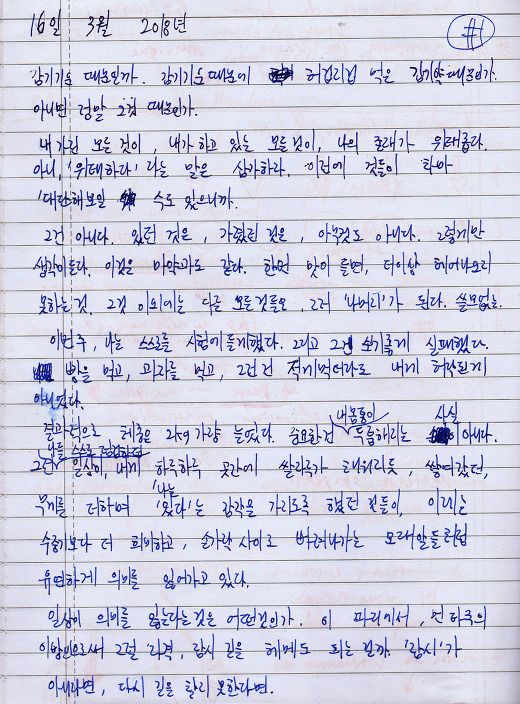 16일 3월 2018년
#1
감기기운 때문인가. 감기기운때문에 허겁지겁 먹은 감기약때문인가.
아니면 정말 그것 때문인가.
내가 가진 모든 것이, 내가 하고 있는 모든것이, 나의 존재가 위태롭다.
아니, '위태하다' 라는 말은 삼가하라. 이런 것들이
'대단해보일 수도 있으니까.
그건 아니다. 있던 것은, 가졌던 것은, 아무것도 아니다. 그렇게만
생각이든다. 이것은 마약과도 같다. 한번 맛이 들면, 더이상 헤어나오지
못하는 것. 그것 이외에는 다른 모든것들은, 그저 '나머지'가 된다. 쓸모없는.
이번주, 나는 스스로를 시험에들게했다. 그리고 그건 보기좋게 실패했다.
빵을 먹고, 과자를 먹고, 그런건 적게먹더라도 내게 허락된게
아니었다.
결과적으로 체중은 2kg 가량 늘었다. 중요한건 내 몸통이 두툼해지는 사실이 아니다.
나를 스스로
그런 일상이, 내게 하루하루 곳간에 쌀가루가 채워지듯, 쌓여갔던,
무게를 더하며 '나는 있다'는 감각을 가지도록 했던 것들이, 이제는
수증기보다 더 희미하고, 손가락 사이로 빠져나가는 모래알들처럼
유연하게 의미를 잃어가고 있다.
일상이 의미를 잃는다는것은 어떤것인가. 이 파리에서, 먼 타국의
이방인으로써 그럴 자격, 잠시 길을 헤메도 되는 걸까. '잠시'가
아니라면, 다시 길을 찾지 못한다면.